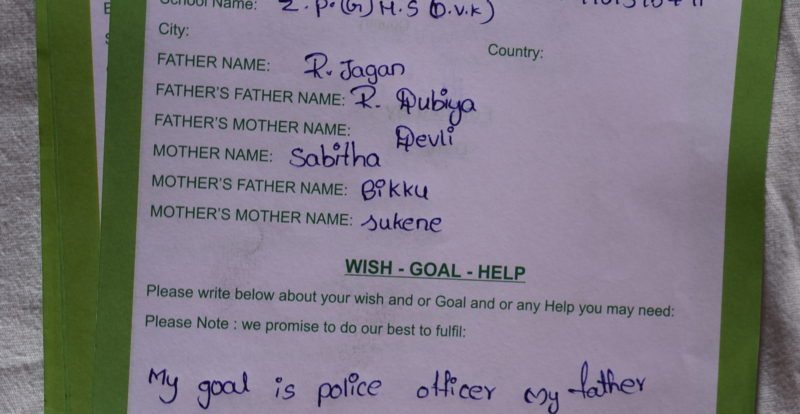 School Name: Z.P.(G) H.S (D.V.K)
City:
Country:
FATHER NAME: R. Jagan
FATHER'S FATHER NAME: R. Dubiya
FATHER'S MOTHER NAME: Devli
MOTHER NAME: Sabitha
MOTHER'S FATHER NAME: Bikku
MOTHER'S MOTHER NAME: sukene
WISH - GOAL - HELP
Please write below about your wish and or Goal and or any Help you may need:
Please Note : we promise to do our best to fulfil:
My goal is police officer my father